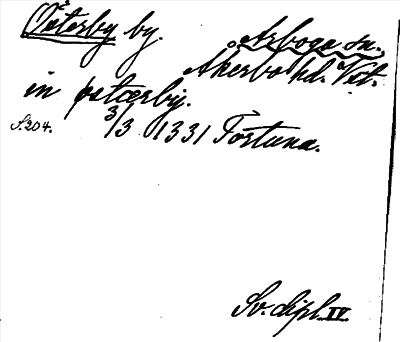 Österby by. Arboga sn.
Åkerbo hd. Vst.
in østærby.
S.204. 3/3 1331 Torstuna.
Sv. dipl. IV.